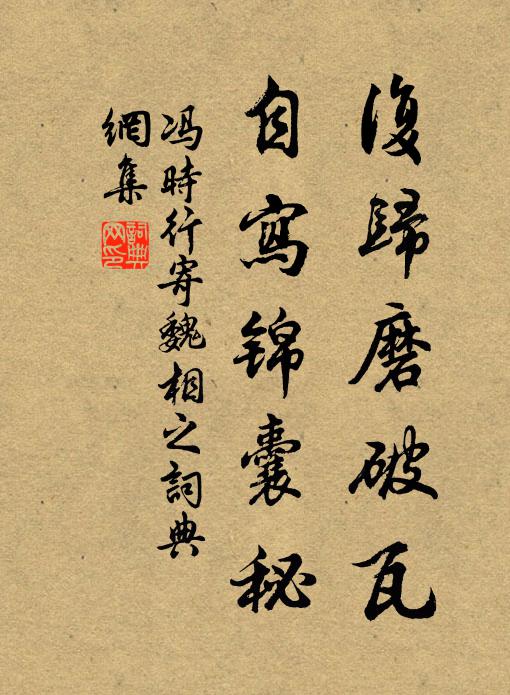 復歸磨破瓦
自寫錦囊秘
冯時行寄魏相之詞典
網集
詞典
网印